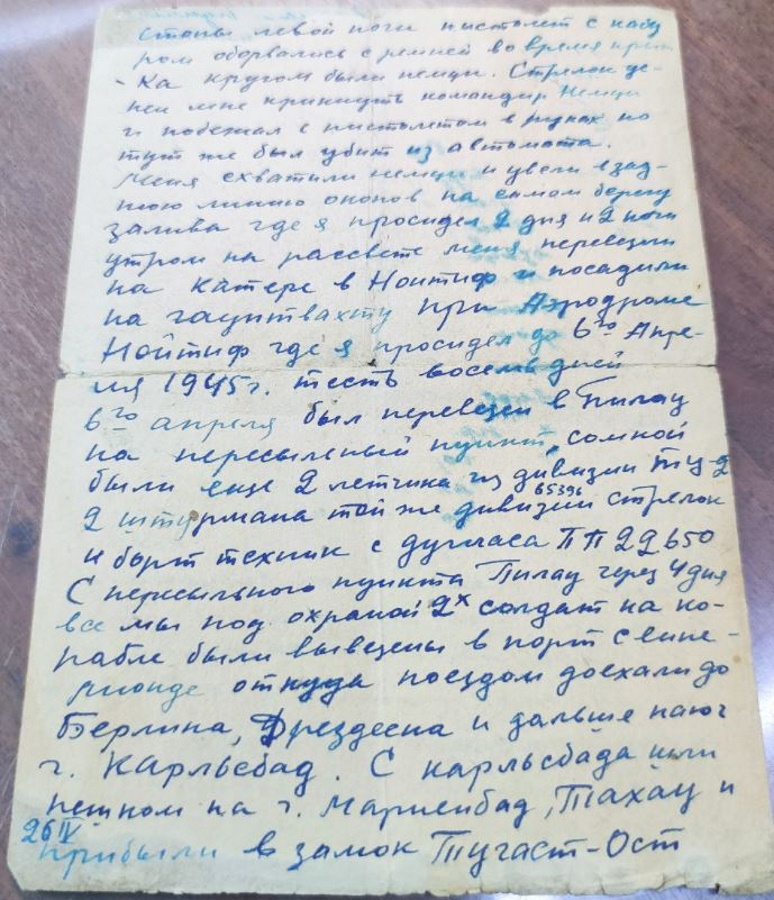 стопы левой ноги пистолет с кабу
ром оборвались с ремней во время прыж
ка кругом были немцы. Стрелок
мне крикнуть командир Немцы
и побежал с пистолетом в руках но
тут же был убит из автомата.
Меня схватили немцы и увели в зад-
нюю линию окопов на самом берегу
залива где я просидел 2 дня и 2 ночи
утром на рассвете меня перевезли
на катере в Нойтиф и посадили
на гауптвахту при Аэродроме
Нойтиф где я просидел до 6го Апре-
ля 1945г. тесть восемь дней
6го апреля был перевезен в Пилау
на пересыльный пункт, сомной
были еще 2 летчика из дивизии ТУ-2
2 штурмана той же дивизии 65396 стрелок
и борт техник с дугласа ПП 22650
С пересыльного пункта Пилау через 4 дня
все мы под охраной 2х солдат на ко-
рабле были вывезены в порт Свине-
мюнде откуда поездом доехали до
Берлина, Дрездена и дальше на юг
г. Карльсбад. С карльсбада шли
пешком на г. Мариенбад, Тахау и
26 IV
прибыли в замок Тугаст-Ост